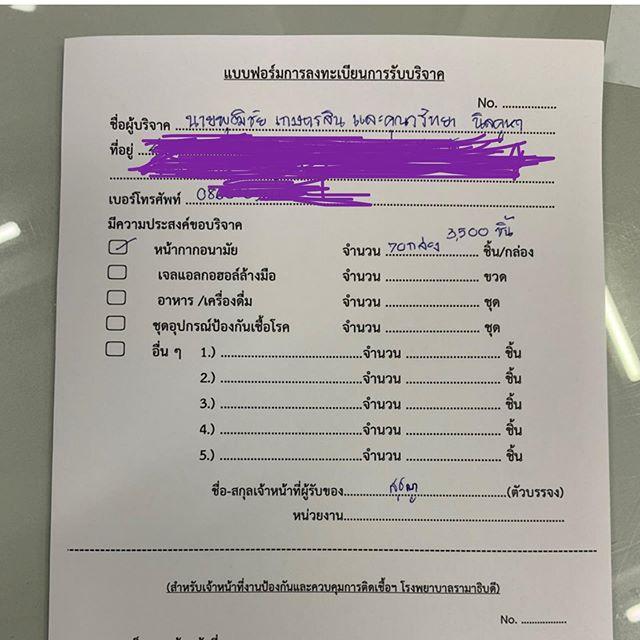 แบบฟอร์มการลงทะเบียนการรับบริจาค
No. ................
ชื่อผู้บริจาค นายพุฒิชัย เกษตรสิน และคุณวิทยา
ที่อยู่
เบอร์โทรศัพท์ 086
มีความประสงค์ขอบริจาค
หน้ากากอนามัย จำนวน 70 กล่อง 3,500 ชิ้น ชิ้น/กล่อง
เจลแอลกอฮอล์ล้างมือ จำนวน ........................ ขวด
อาหาร /เครื่องดื่ม จำนวน ........................ ชุด
ชุดอุปกรณ์ป้องกันเชื้อโรค จำนวน ........................ ชุด
อื่น ๆ 1.) ........................จำนวน ........................ ชิ้น
2.) ........................จำนวน ........................ ชิ้น
3.) ........................จำนวน ........................ ชิ้น
4.) ........................จำนวน ........................ ชิ้น
5.) ........................จำนวน ........................ ชิ้น
ชื่อ-สกุลเจ้าหน้าที่ผู้รับของ........................(ตัวบรรจง)
หน่วยงาน........................
(สำหรับเจ้าหน้าที่งานป้องกันและควบคุมการติดเชื้อฯ โรงพยาบาลรามาธิบดี)
No. ................